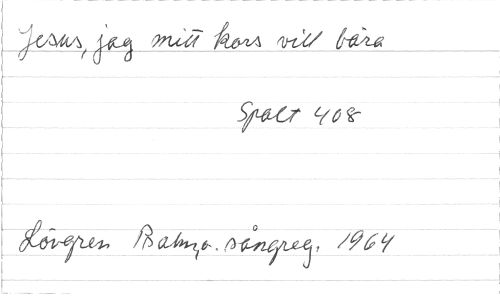 Jesus, jag mitt kors vill bära
Spalt 408
Lövgren Psalm o. sångreg. 1964